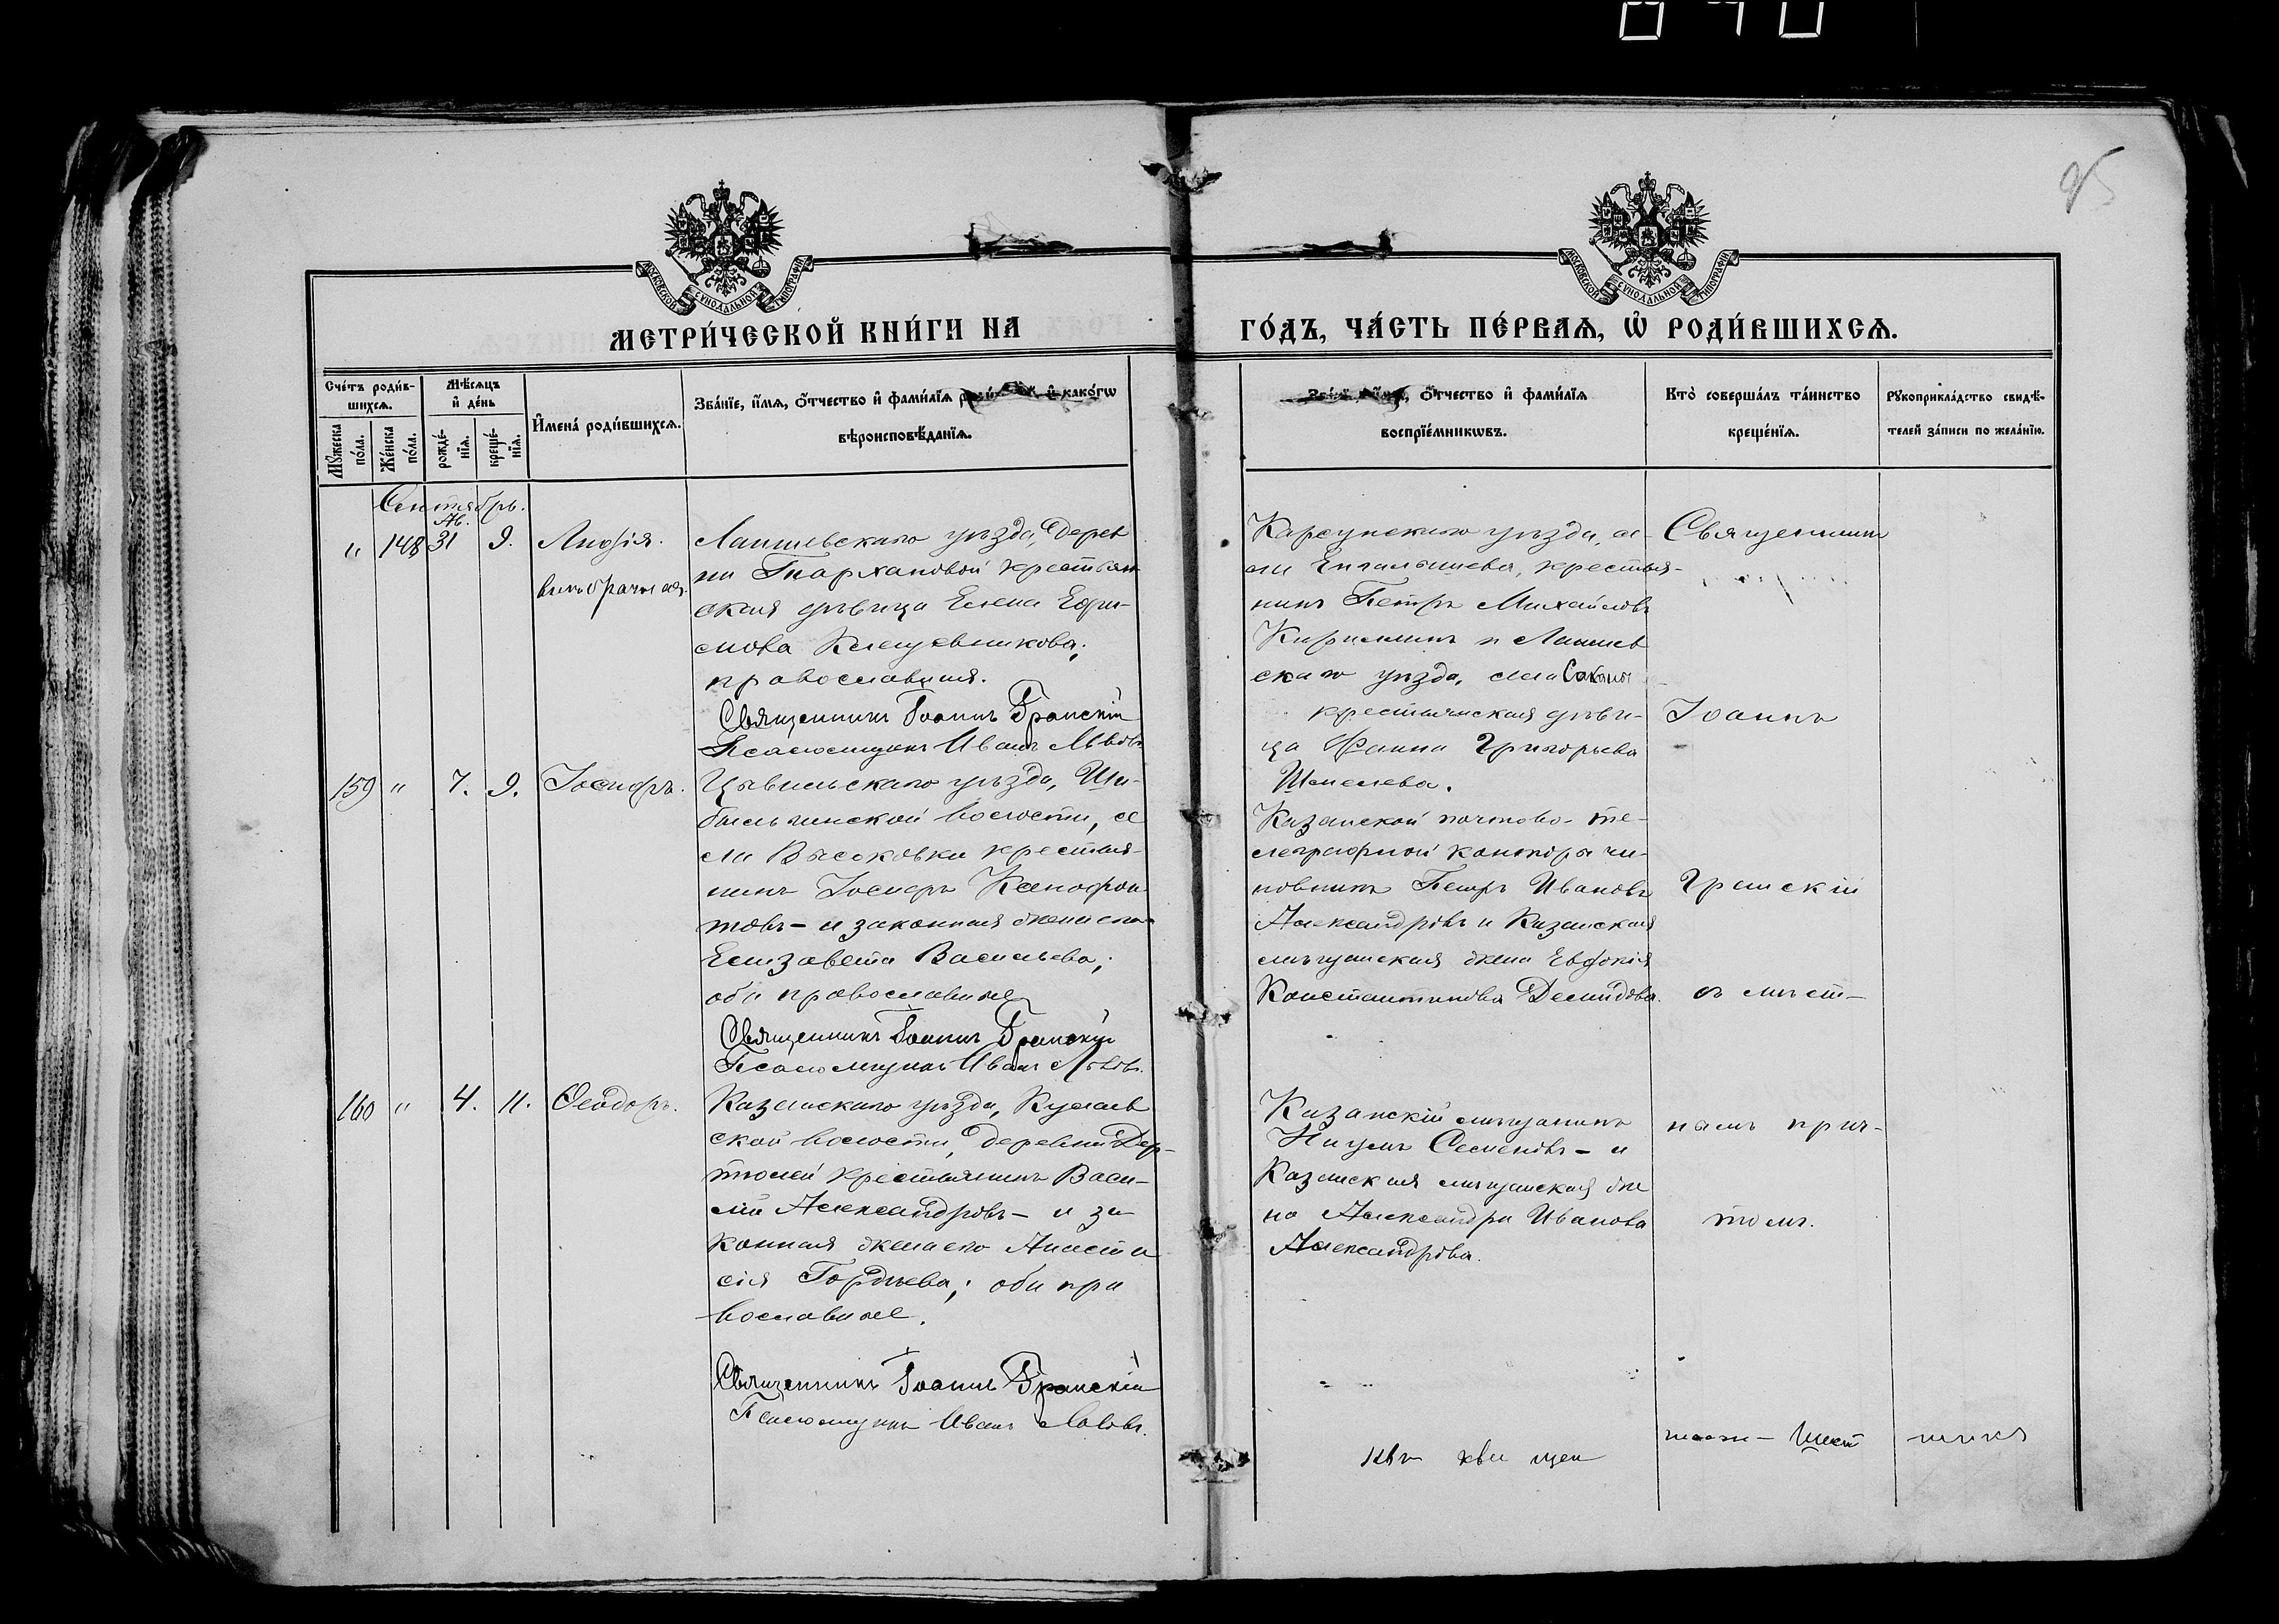 95
МОСКОВСКОЙ СѴНОДАЛЬНОЙ ТИПОГРАФІИ
МОСКОВСКОЙ СѴНОДАЛЬНОЙ ТИПОГРАФІИ
МЕТРИ́ЧЕСКОЙ КНИ́ГИ НА
ГО́ДЪ, ЧА́СТЬ ПЕ́РВАѦ, Ѡ҆ РОДИ́ВШИХСѦ.
Сче́тъ роди́в-
шихсѧ.
Мꙋ́жеска по́ла.
Же́нска по́ла.
Мѣ́сѧцъ
и҆ де́нь
рожде́-
нїѧ.
креще́-
нїѧ.
И҆мена̀ роди́вшихсѧ.
Зва́нїе, и҆́мѧ, ѻ҆́тчество и҆ фами́лїѧ и҆ како́гѡ
вѣроисповѣ́данїѧ.
ѻ҆́тчество и҆ фами́лїѧ
воспрїе́мникѡвъ.
Кто̀ соверша́лъ та́инство
креще́нїѧ.
Рꙋкоприкла́дство свидѣ́-
телей за́писи по жела́нїю.
Сентябрь.
Ав.
" 148 31 9.
внѣбрачная.
Лаишевскаго уѣзда, дерев
ни Тархановой крестьян
ская дѣвица Елена Ефи-
мова Ключевникова;
православная.
Священникъ Іоаннъ Гранскій
Псаломщикъ Иванъ Львовъ
Карсунскаго уѣзда, се-
ла Енгалычева, крестья-
нинъ Петръ Михайловъ
Кирилинъ и Лаишев
скаго уѣзда, села
крестьянская дѣви-
ца Фаина Григорьева
Шмелева.
Священникъ
Іоаннъ
Гранскій
съ мѣст-
нымъ прич-
томъ.
159 " 7. 9. Іосифъ.
Цывильскаго уѣзда, Ши-
быльгинской волости, се
ла Высоковки крестья-
нинъ Іосифъ Ксенофон
товъ - и законная жена его
Елизавета Васильева;
оба православные
Священникъ Іоаннъ Гранскій
Псаломщикъ Иванъ Львовъ.
Казанской почтово-те-
леграфной конторы чи-
новникъ Петръ Ивановъ
Александровъ и Казанская
мѣщанская жена Евдокія
Константинова Демидова.
160 " 4. 11. Ѳеодоръ.
Казанскаго уѣзда, Кулаев
ской волости, деревни Дер-
тюлей крестьянинъ Васи-
лій Александровъ - и за
конная жена его Анаста
сія Гордѣева; оба пра
вославные.
Священникъ Іоаннъ Гранскій
Псаломщикъ Иванъ Львовъ.
Казанскій мѣщанинъ
Наумъ Семеновъ - и
Казанская мѣщанская же
на Александра Иванова
Александрова.